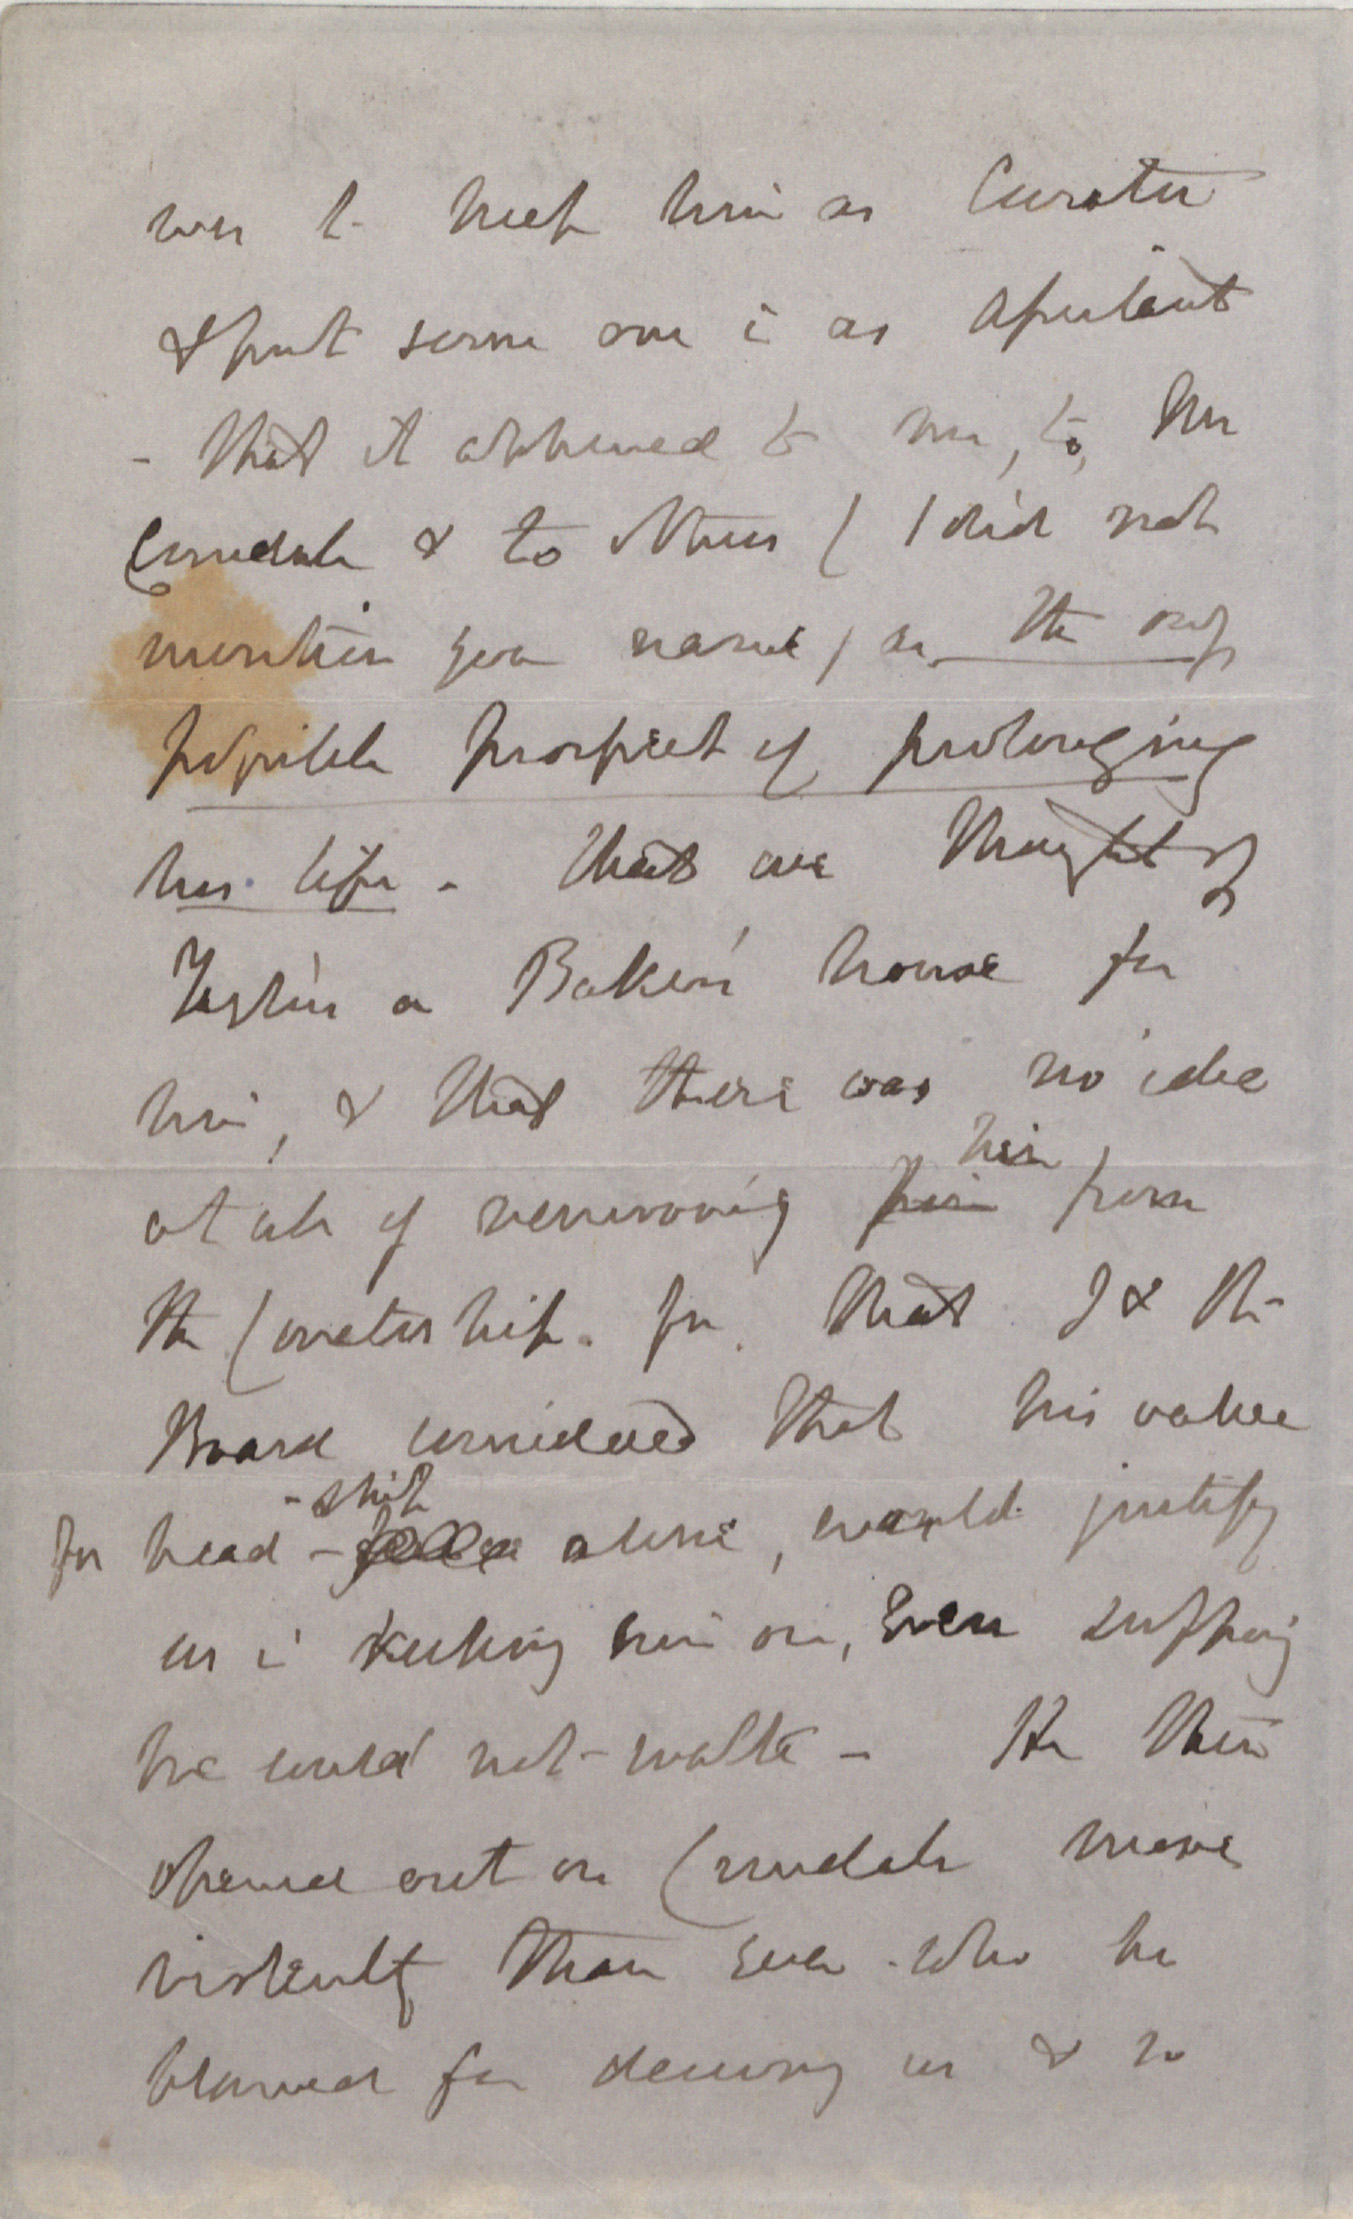 was to keep him as Curator
& put some one in as Assistant
- that it appeared to me, to, Mr
Crundale & to others ( I did not
mention your name ) as the only
possible prospect of prolonging
his life - that we thought of
a Baker's house for
him, & that there was no idea
at all of removing him him from
the Curatorship. for that I & the
Board considered that his value
for head-ship alone, would justify
us in keeping him on, even supposing
he could not walk - He then
opened out on Crundale more
violently than ever who he
blamed for deceiving us & so